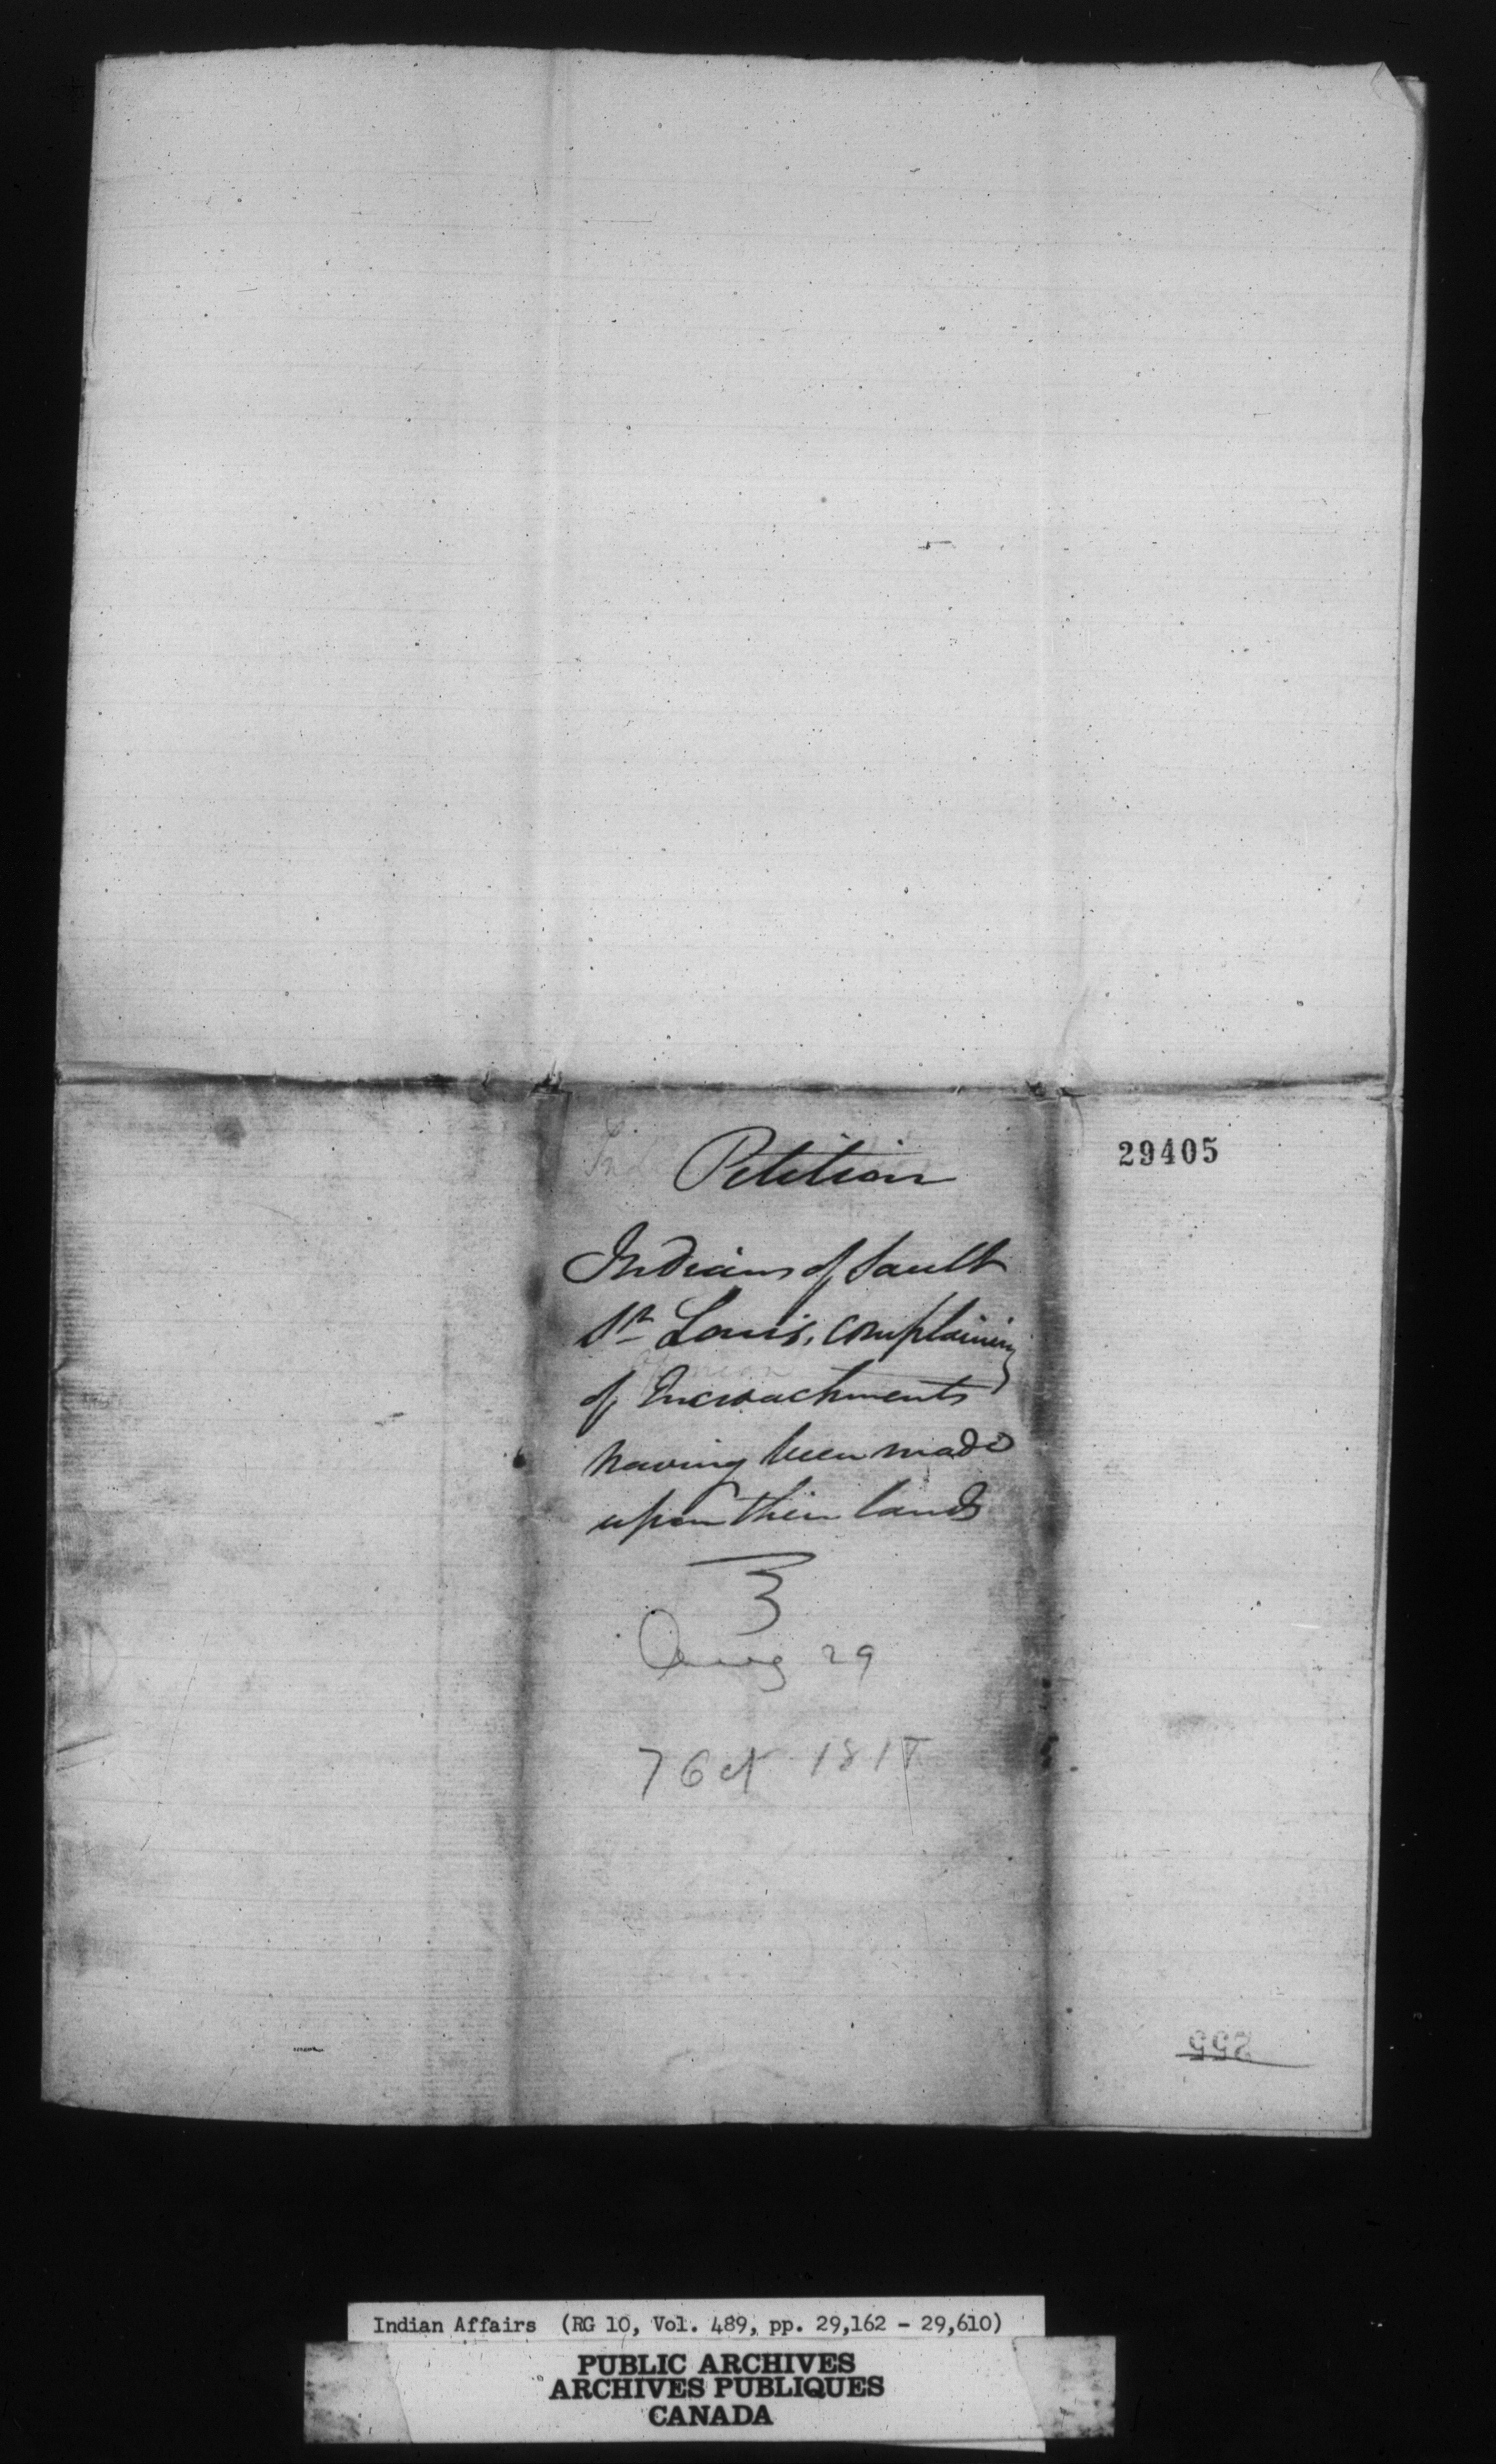 Petition
29405
Indians of Sault
St Louis, complaining
of Encroachments
having been made
upon their lands
3
Aug 29
7 Oct 181
255
Indian Affairs (RG 10, Vol. 489, pp. 29,162 - 29,610)
PUBLIC ARCHIVES
ARCHIVES PUBLIQUES
CANADA